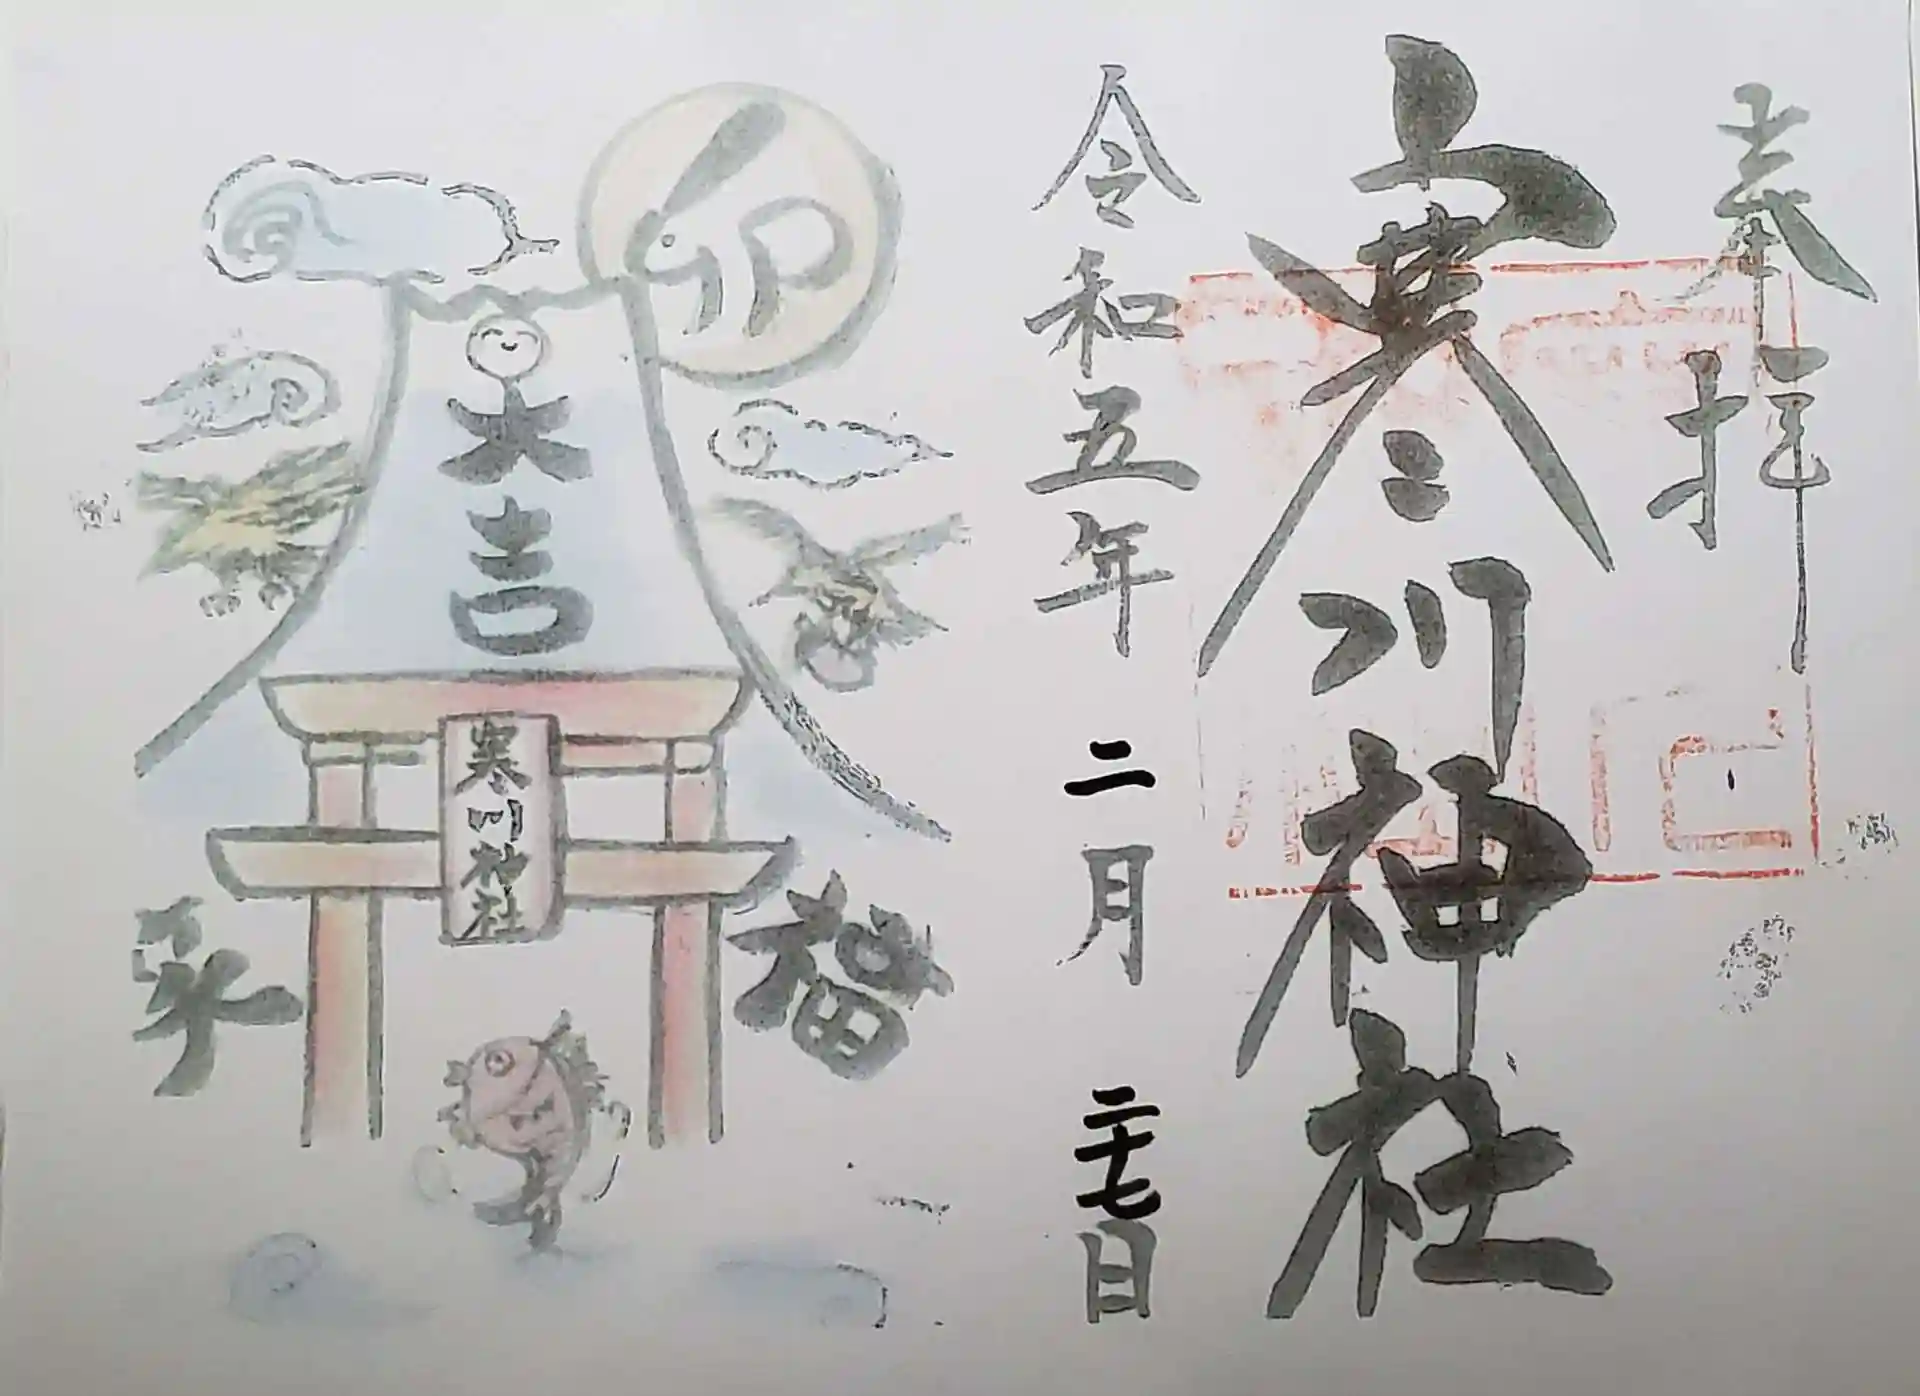 奉拝
寒川神社
令和五年 二月 二十七日
卯
大吉
寒川神社
福
来